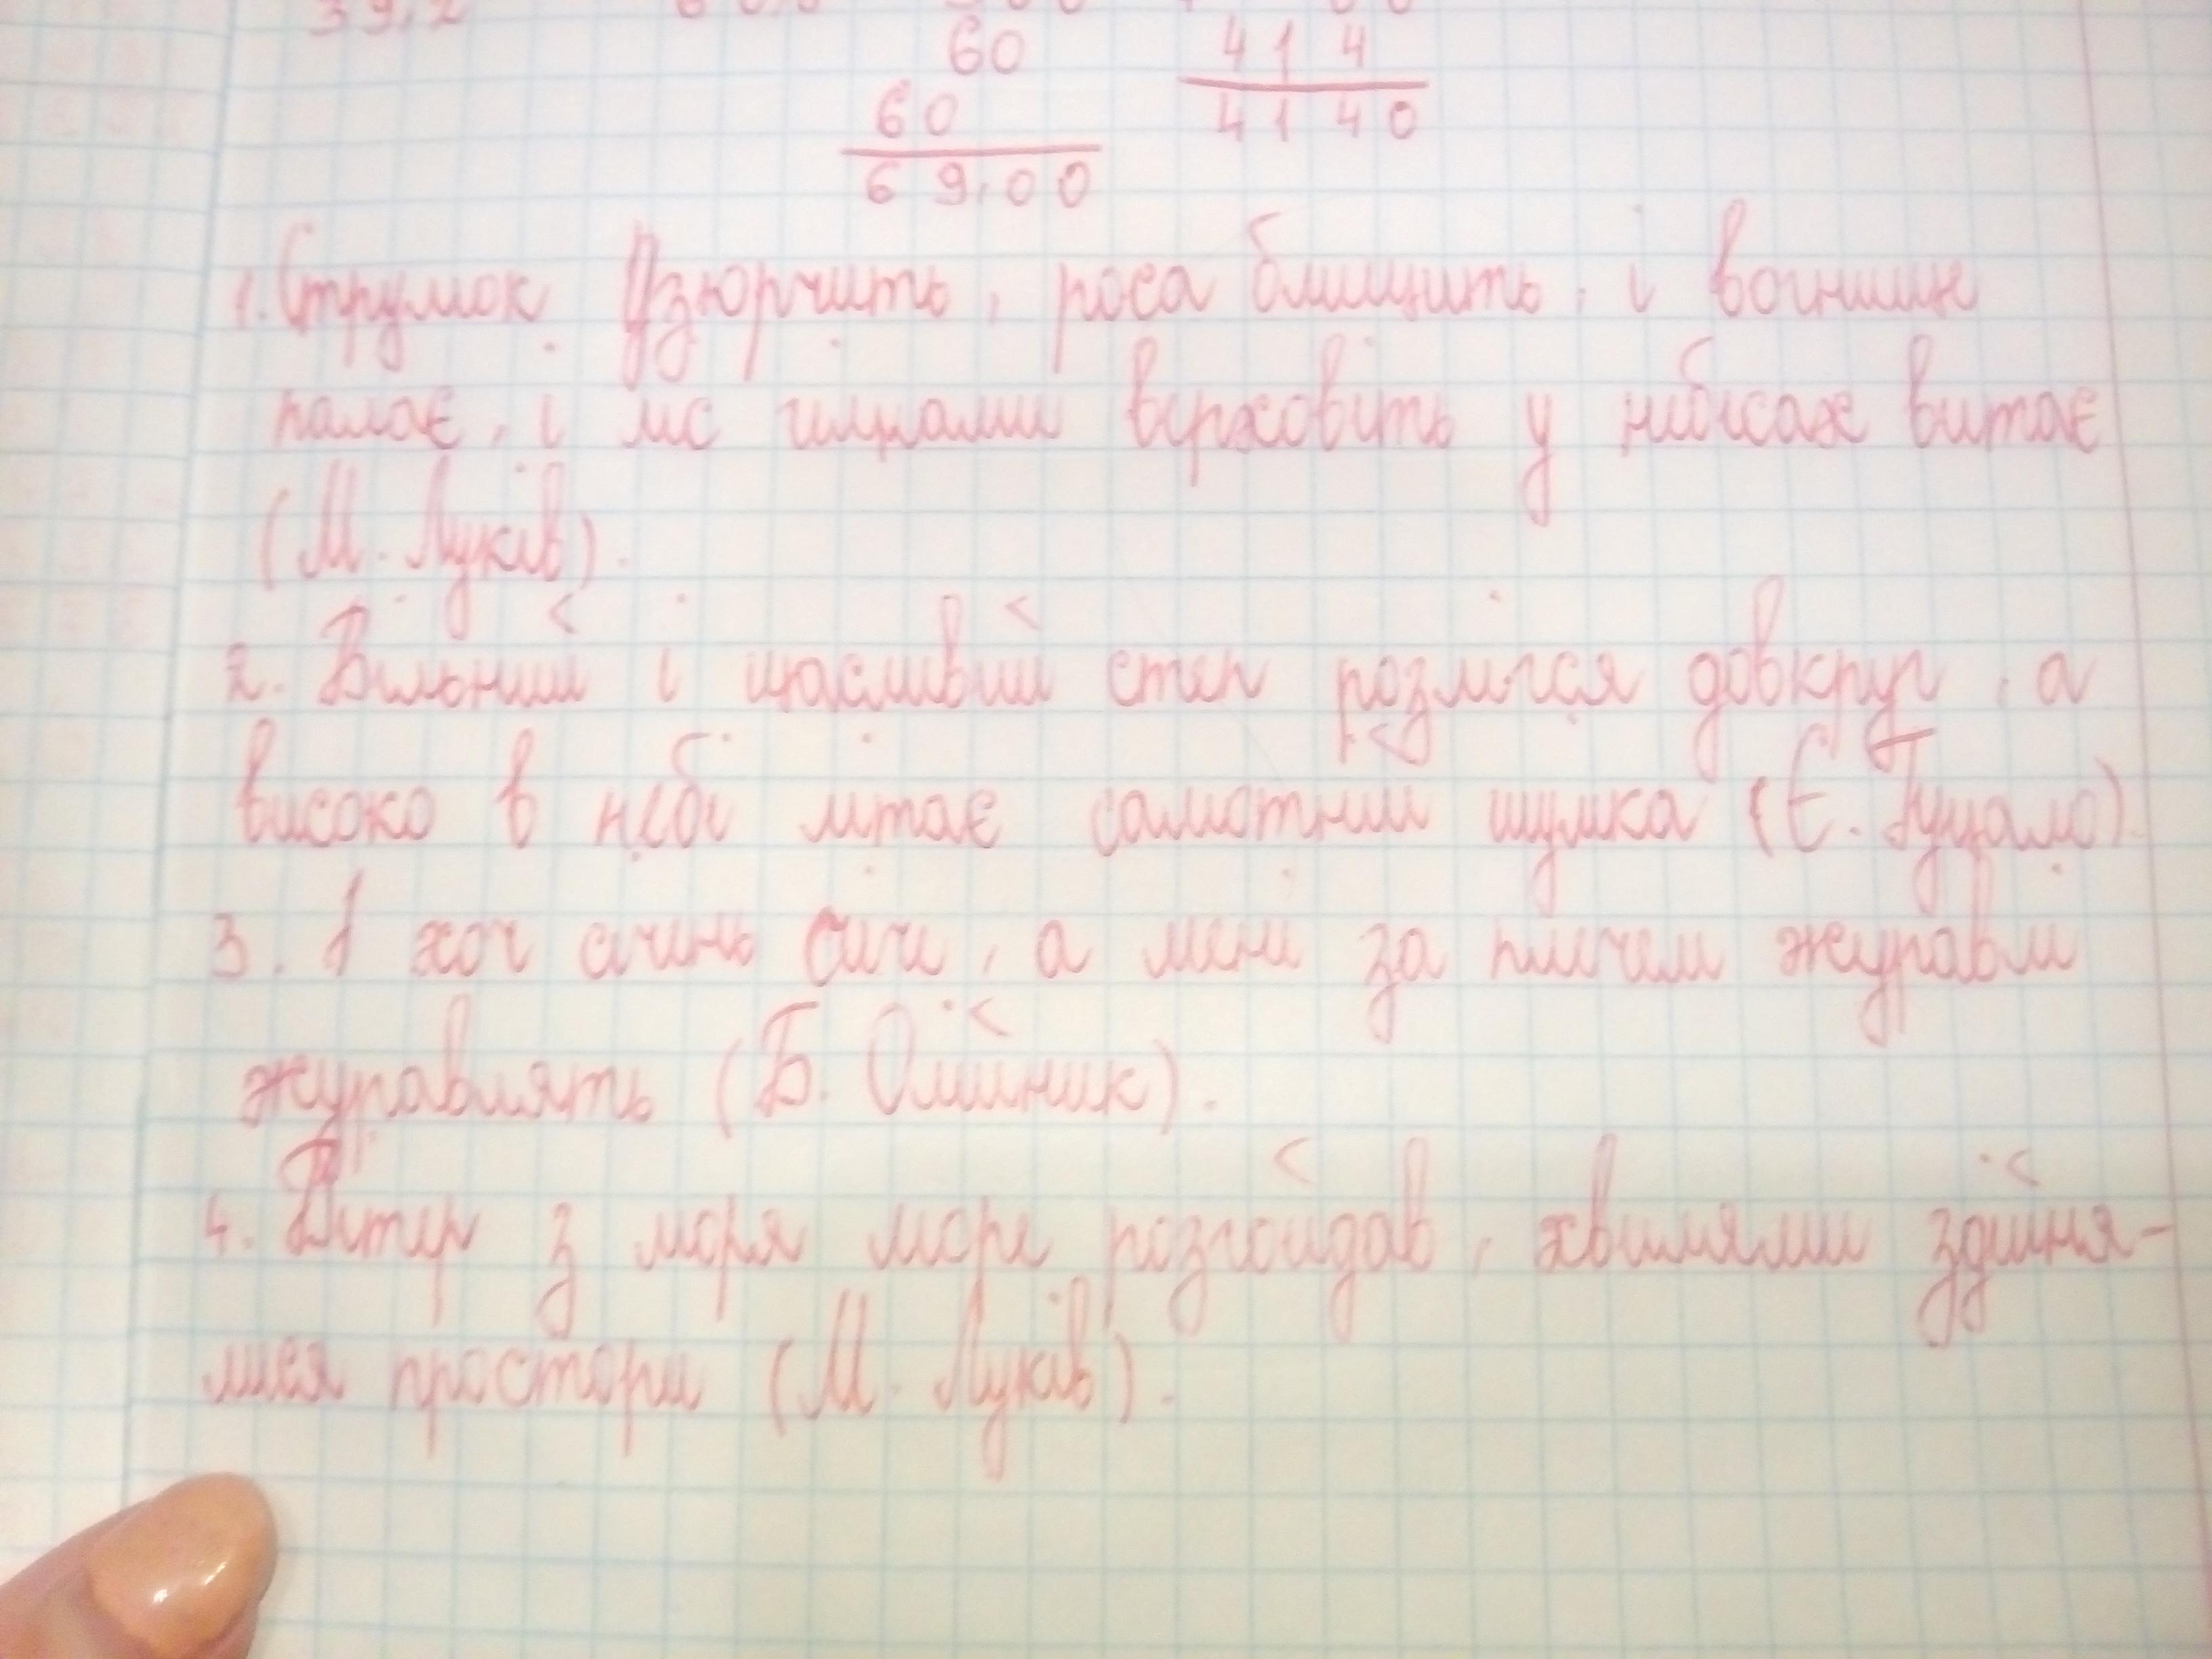 39,2
60
414
60
4140
69,00
1. Струмок дзюрчить, роса блищить, і вогнище
палає, і ліс гілками верховіть у небесах витає
(М. Луків).
2. Вільний і щасливий степ розлігся довкруг, а
високо в небі літає самотній шуліка (Є. Гуцало).
3. І хоч січень січе, а мені за плечем журавлі
журавлять (Б. Олійник).
4. Вітер з моря море розгойдав, хвилями здійня-
лися простори (М. Луків).